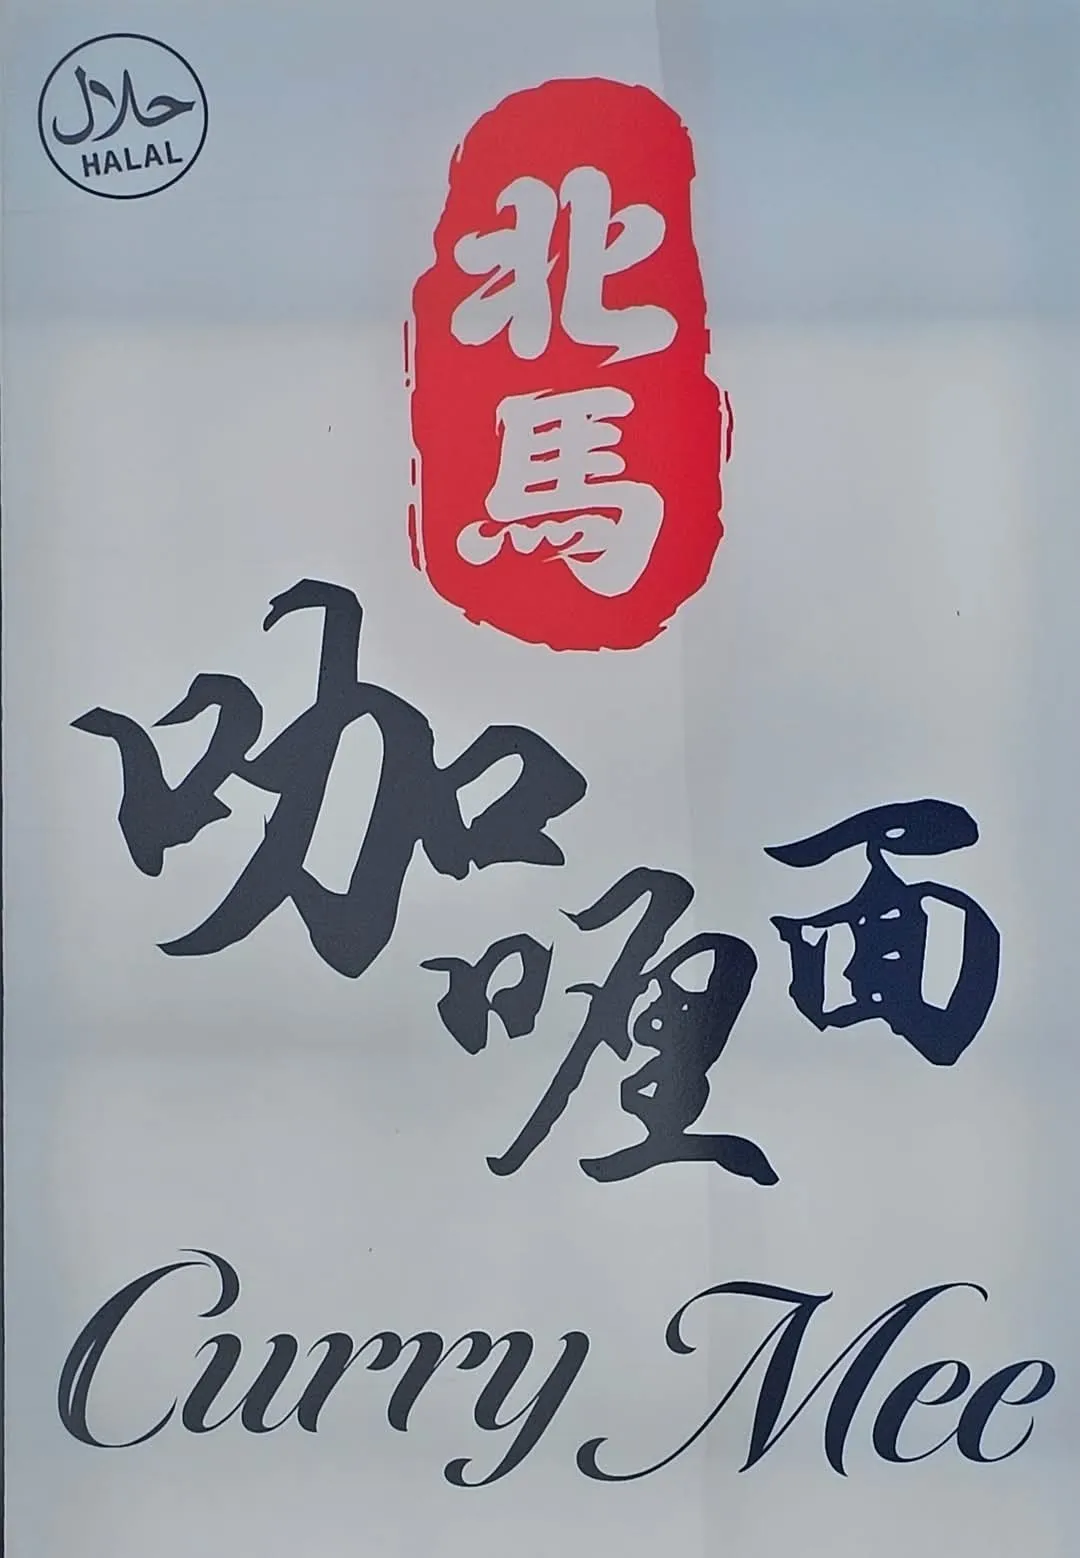 حلال
HALAL
北馬
咖喱面
Curry Mee